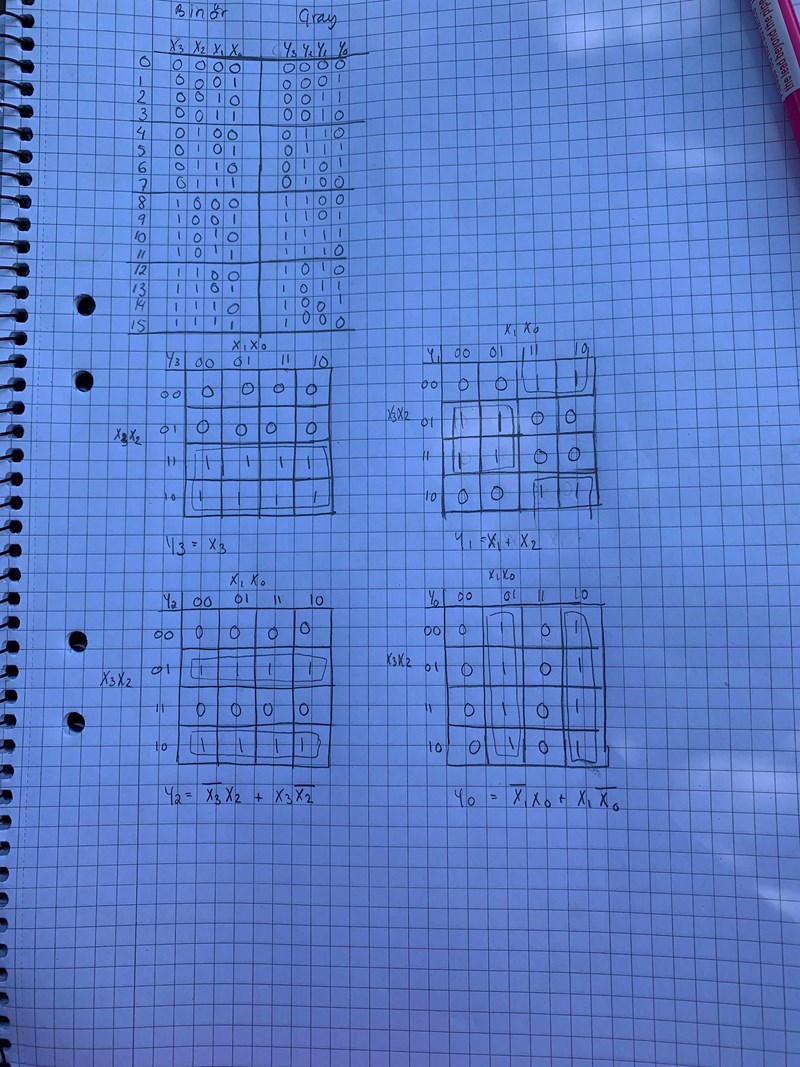 Binär Gray
X3 X2 X1 X0 Y3 Y2 Y1 Y0
0 0 0 0 0 0 0 0 0
1 0 0 0 1 0 0 0 1
2 0 0 1 0 0 0 1 1
3 0 0 1 1 0 0 1 0
4 0 1 0 0 0 1 1 0
5 0 1 0 1 0 1 1 1
6 0 1 1 0 0 1 0 1
7 0 1 1 1 0 1 0 0
8 1 0 0 0 1 1 0 0
9 1 0 0 1 1 1 0 1
10 1 0 1 0 1 1 1 1
11 1 0 1 1 1 1 1 0
12 1 1 0 0 1 0 1 0
13 1 1 0 1 1 0 1 1
14 1 1 1 0 1 0 0 1
15 1 1 1 1 1 0 0 0
X1 X0
Y3 00 01 11 10
00 0 0 0 0
X3X2
01 0 0 0 0
11 1 1 1 1
10 1 1 1 1
Y3 = X3
X1 X0
Y1 00 01 11 10
00 0 0 1 1
X3X2
01 1 1 0 0
11 1 1 0 0
10 0 0 1 1
Y1 = X1 + X2
X1 X0
Y2 00 01 11 10
00 0 0 0 0
01 1 1 1 1
X3X2
11 0 0 0 0
10 1 1 1 1
Y2 = X̅3 X2 + X3 X̅2
X1X0
Y0 00 01 11 10
00 0 1 0 1
X3X2
01 0 1 0 1
11 0 1 0 1
10 0 1 0 1
Y0 = X̅1 X0 + X1 X̅0